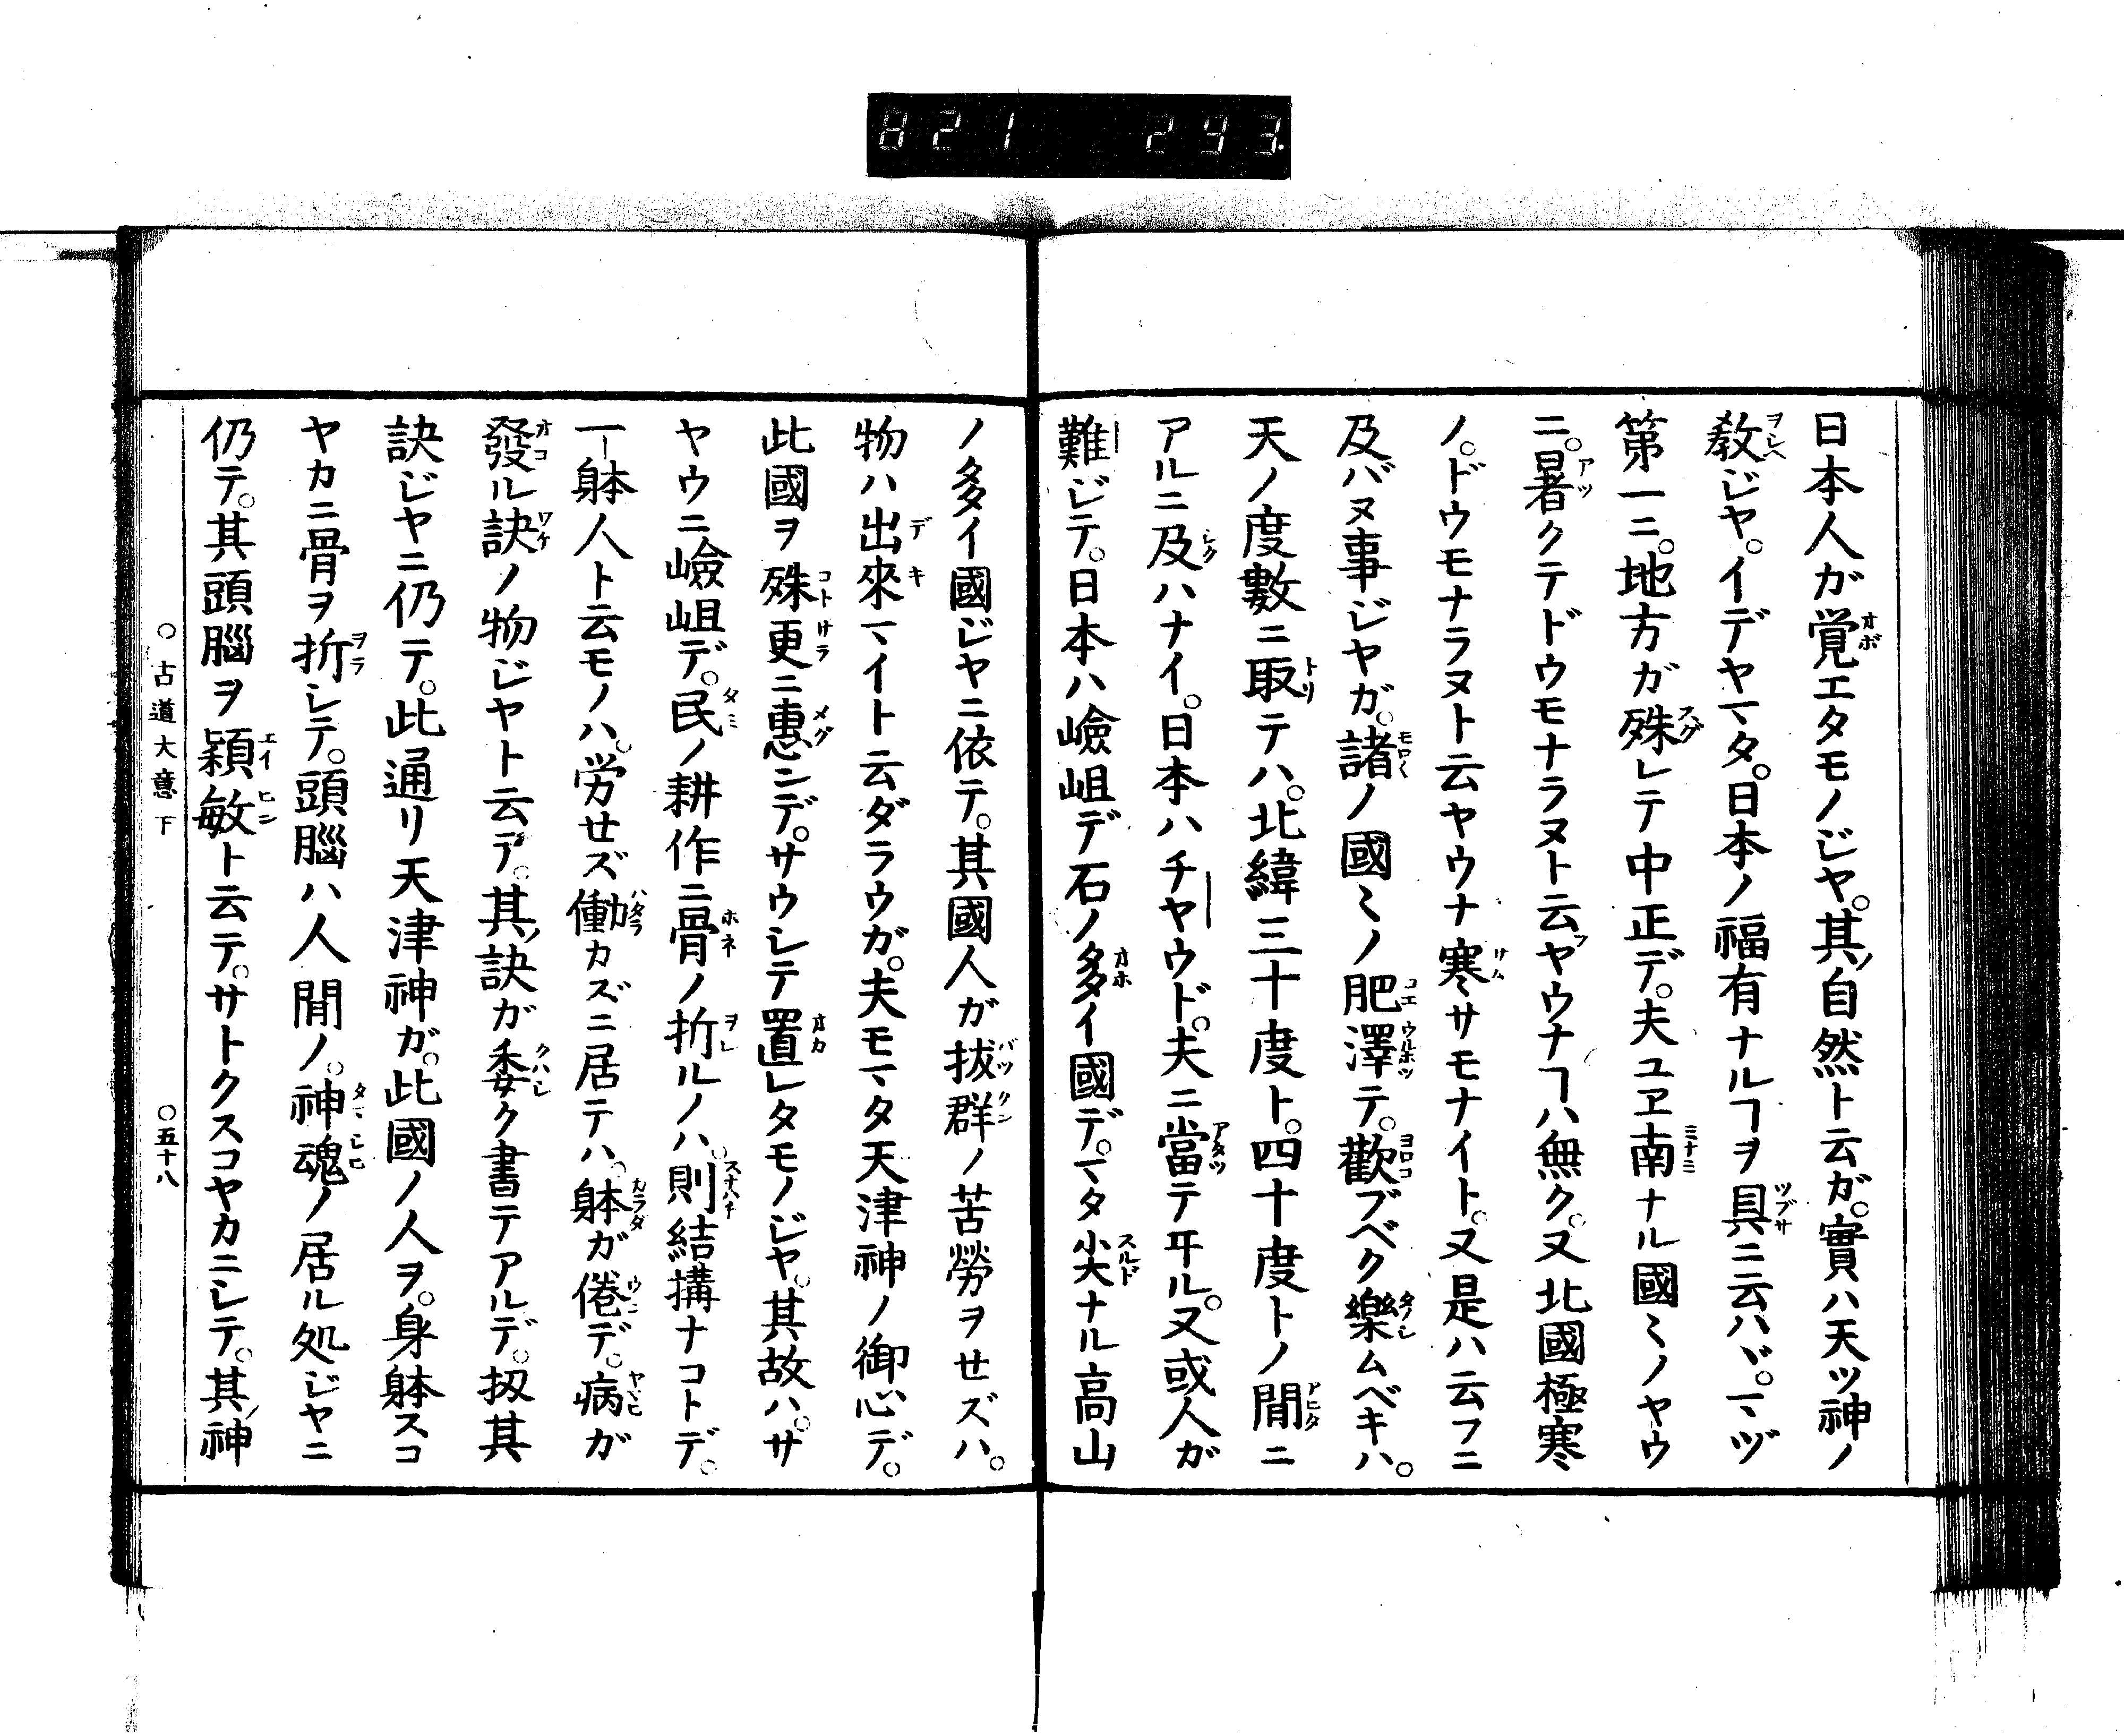 821 293.
日本人ガ覚エタモノじヤ。其ノ自然ト云ガ。實ハ天ツ神ノ
教じヤ。イデヤマタ。日本ノ福有ナルヿヲ具ニ云ハヾ。マヅ
第一ニ。地方ガ殊レテ中正デ。夫ユヱ南ナル國〻ノヤウ
ニ。暑クテドウモナラヌト云フヤウナヿハ無ク。又北國極寒
ノ。ドウモナラヌト云ヤウナ寒サモナイト。又是ハ云フニ
及バヌ事じヤガ。諸ノ國〻ノ肥澤テ。歡ブベク樂ムベキハ。
天ノ度數ニ取テハ。北緯三十度ト。四十度トノ間ニ
アルニ及ハナイ。日本ハチヤウド。夫ニ當テヰル。又或人ガ
難じテ。日本ハ嶮岨デ石ノ多イ國デ。マタ尖ナル高山
ノ多イ國じヤニ依テ。其國人ガ抜群ノ苦勞ヲせズハ。
物ハ出來マイト云ダラウガ。夫モマタ天津神ノ御心デ。
此國ヲ殊更ニ惠ンデ。サウシテ置レタモノじヤ。其故ハ。サ
ヤウニ嶮岨デ。民ノ耕作ニ骨ノ折ルノハ。則結搆ナコトデ。
一躰人ト云モノハ。労せズ働カズニ居テハ。躰ガ倦デ。病ガ
發ル訣ノ物じヤト云ア。其ノ訣ガ委ク書テアルデ。扨其
訣じヤニ仍テ。此通リ天津神ガ。此國ノ人ヲ。身躰スコ
ヤカニ骨ヲ折シテ。頭腦ハ人間ノ。神魂ノ居ル処じヤニ
仍テ。其頭腦ヲ穎敏ト云テ。サトクスコヤカニシテ。其ノ神
○古道大意下 ○五十八